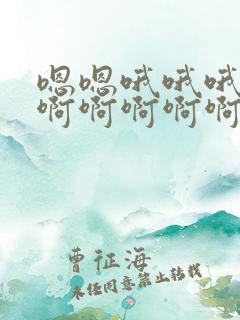 嗯嗯哦哦哦
啊啊啊啊啊
曹征海
未经同意禁止转载